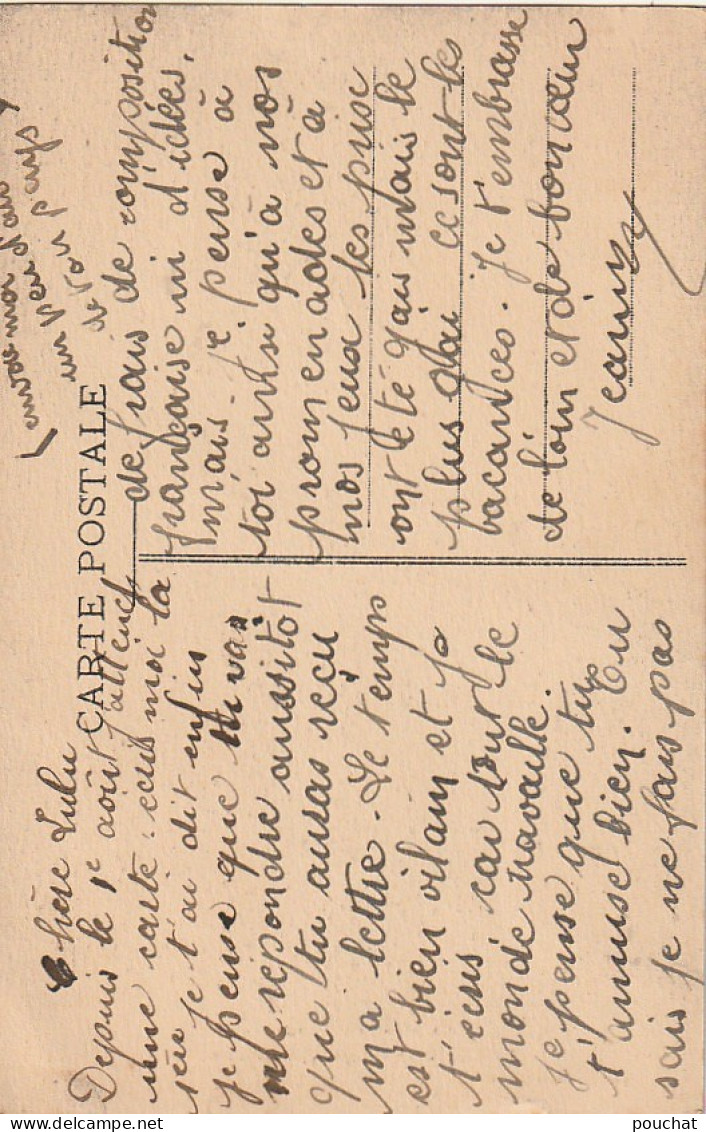 CARTE POSTALE
Chère Lulu
Depuis le 1e août j'attend
une carte. écris moi la
je t'ai dit enfin
je pense que tu vas
me repondre aussitôt
que tu auras reçu
ma lettre. Le temps
est bien vilain et je
t'écris car tout le
monde travaille.
Je pense que tu
t'amuse bien. Tu
sais je ne fais pas
de frais de composition
française ni d'idées,
mais je pense à
toi ainsi qu'à nos
promenades et à
nos jeux les puse
ont été gais mais le
plus gai ce sont les
vacances. Je t'embrasse
de loin et de bon cœur
Jeanine
envoie moi
un peu d'air
de ton pays
pouchat